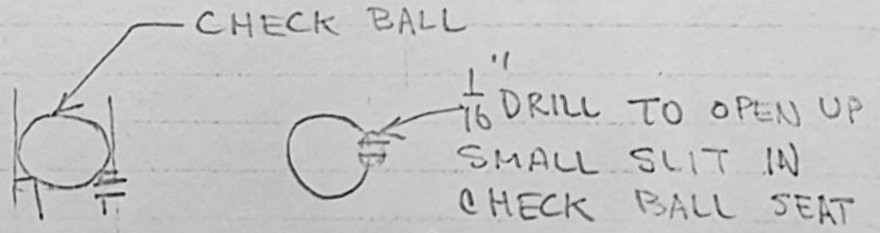 CHECK BALL
1/16" DRILL TO OPEN UP
SMALL SLIT IN
CHECK BALL SEAT